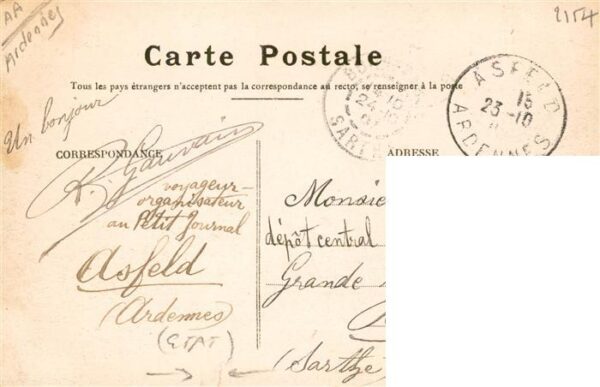 AA
Ardennes
2154
Carte Postale
Tous les pays étrangers n'acceptent pas la correspondance au recto, se renseigner à la poste
Un bonjour
ASFELD
15
23-10
ARDENNES
CORRESPONDANCE
ADRESSE
R. Gauvain
voyageur-
organisateur
au Petit Journal
Asfeld
(Ardennes)
(ETAT)
Monsie
dépôt central
Grande
(Sarthe